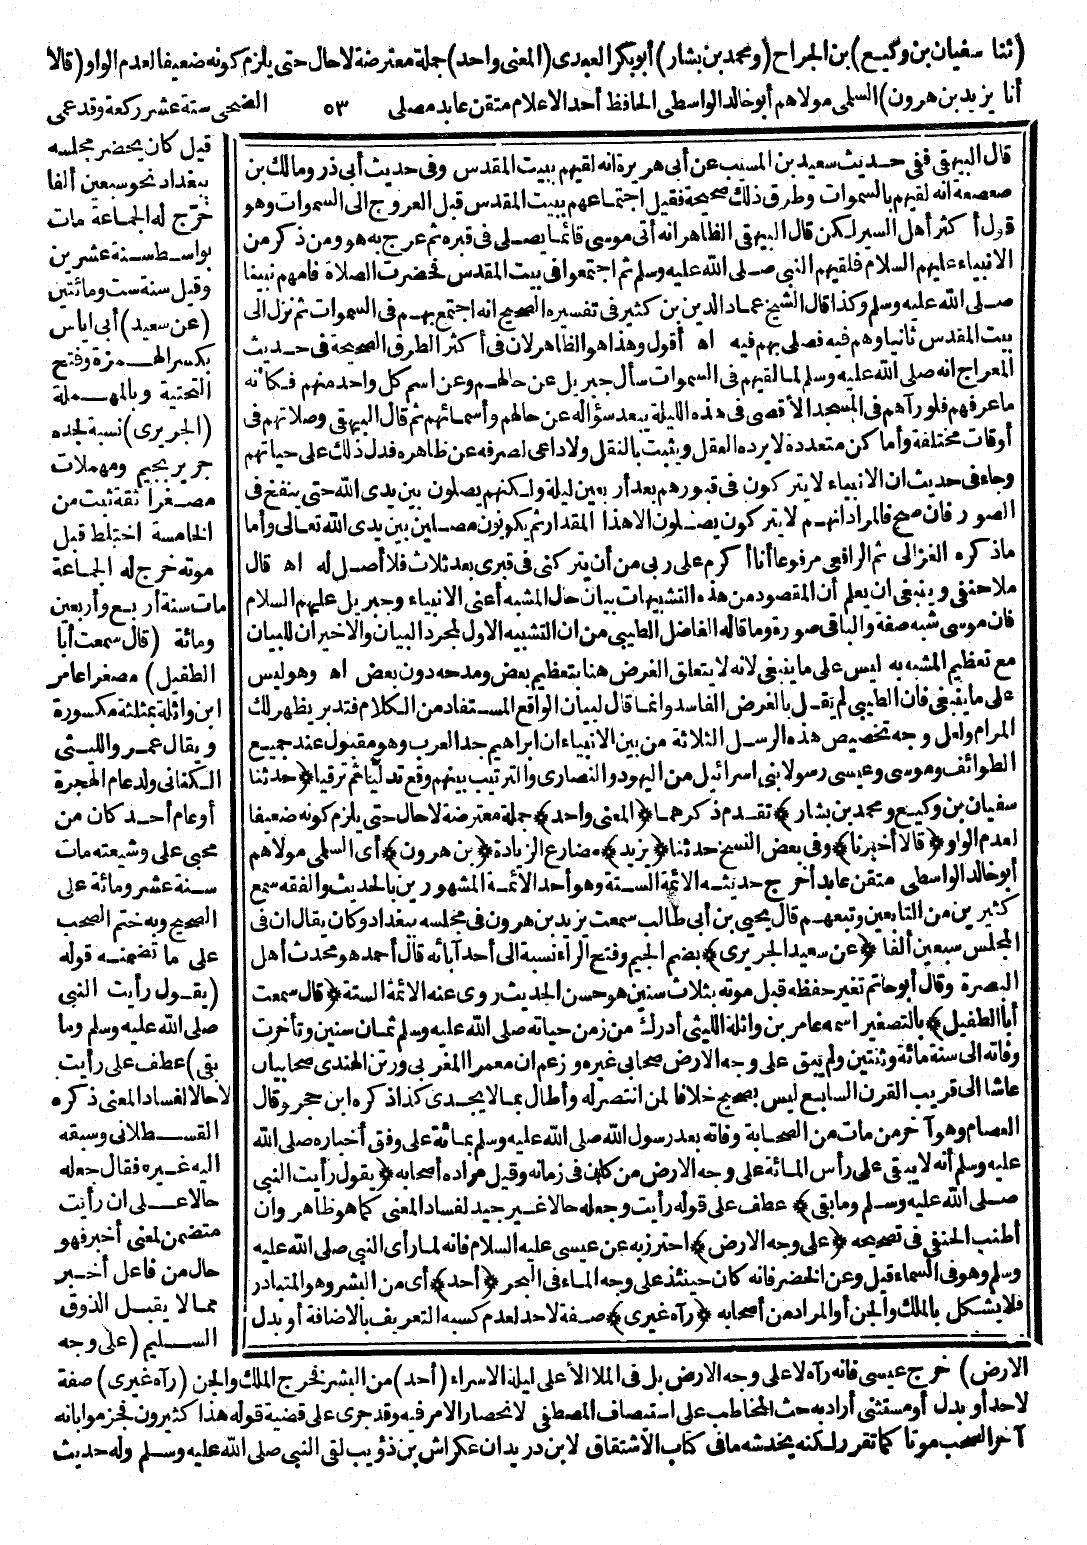 (ثنا سفيان بن وكيع) بن الجراح (ومحمد بن بشار) أبو بكر العبدى (المعنى واحد) جملة معترضة لا حال حتى يلزم كونه ضعيفا لعدم الواو (قالا
أنا يزيد بن هرون) السلمى مولاهم أبو خالد الواسطى الحافظ أحد الاعلام متقن عابد مصلى
٥٣
الضحى ستة عشر ركعة وقد عمى
قال البيهقى ففى حديث سعيد بن المسيب عن أبى هريرة انه لقيهم ببيت المقدس وفى حديث أبى ذر ومالك بن
صعصعة انه لقيهم بالسموات وطرق ذلك صحيحة فقيل اجتماعهم ببيت المقدس قبل العروج الى السموات وهو
قول أكثر أهل السير لكن قال البيهقى الظاهر انه أتى موسى قائما يصلى فى قبره ثم عرج به هو ومن ذكر من
الانبياء عليهم السلام فلقيهم النبى صلى الله عليه وسلم ثم اجتمعوا فى بيت المقدس فحضرت الصلاة فأمهم نبينا
صلى الله عليه وسلم وكذا قال الشيخ عماد الدين بن كثير فى تفسيره الصحيح انه اجتمع بهم فى السموات ثم نزل الى
بيت المقدس ثانيا وهم فيه فصلى بهم فيه اه أقول وهذا هو الظاهر لان فى أكثر الطرق الصحيحة فى حديث
المعراج انه صلى الله عليه وسلم لما لقيهم فى السموات سأل جبريل عن حالهم وعن اسم كل واحد منهم فكأنه
ما عرفهم فلو رآهم فى المسجد الأقصى فى هذه الليلة يبعد سؤاله عن حالهم وأسمائهم ثم قال البيهقى وصلاتهم فى
أوقات مختلفة وأماكن متعددة لا يرده العقل ويثبت بالنقل ولا داعى لصرفه عن ظاهره فدل ذلك على حياتهم
وجاء فى حديث ان الانبياء لا يتركون فى قبورهم بعد أربعين ليلة ولكنهم يصلون بين يدى الله حتى ينفخ فى
الصور فان صح فالمراد انهم لا يتركون يصلون الا هذا المقدار ثم يكونون مصلين بين يدى الله تعالى وأما
ما ذكره الغزالى ثم الرافعى مرفوعا أنا أكرم على ربى من أن يتركنى فى قبرى بعد ثلاث فلا أصل له اه قال
ملا حنفى وينبغى ان يعلم أن المقصود من هذه التشبيهات بيان حال المشبه أعنى الانبياء وجبريل عليهم السلام
فان موسى شبه صفة والباقى صورة وما قاله الفاضل الطيبى من ان التشبيه الاول لمجرد البيان والاخيران للبيان
مع تعظيم المشبه به ليس على ما ينبغى لانه لا يتعلق الغرض هنا بتعظيم بعض ومدحه دون بعض اه وهو ليس
على ما ينبغى فان الطيبى لم يقل بالغرض الفاسد وانما قال لبيان الواقع المستفاد من الكلام فتدبر يظهر لك
المرام ولعل وجه تخصيص هذه الرسل الثلاثة من بين الانبياء ان ابراهيم جد العرب وهو مقبول عند جميع
الطوائف وموسى وعيسى رسولا بنى اسرائيل من اليهود والنصارى والترتيب بينهم وقع تدليا ثم ترقيا ﴿حدثنا
سفيان بن وكيع ومحمد بن بشار﴾ تقدم ذكرهما ﴿المعنى واحد﴾ جملة معترضة لا حال حتى يلزم كونه ضعيفا
لعدم الواو ﴿قالا أخبرنا﴾ وفى بعض النسخ حدثنا ﴿يزيد﴾ مضارع الزيادة ﴿بن هرون﴾ أى السلمى مولاهم
أبو خالد الواسطى متقن عابد أخرج حديثه الأئمة الستة وهو أحد الأئمة المشهورين بالحديث والفقه سمع
كثيرين من التابعين وتبعهم قال يحيى بن أبى طالب سمعت يزيد بن هرون فى مجلسه ببغداد وكان يقال ان فى
المجلس سبعين ألفا ﴿عن سعيد الجريرى﴾ بضم الجيم وفتح الراء نسبة الى أحد آبائه قال أحمد هو محدث أهل
البصرة وقال أبو حاتم تغير حفظه قبل موته بثلاث سنين هو حسن الحديث روى عنه الائمة الستة ﴿قال سمعت
أبا الطفيل﴾ بالتصغير اسمه عامر بن واثلة الليثى أدرك من زمن حياته صلى الله عليه وسلم ثمان سنين وتأخرت
وفاته الى سنة مائة وثنتين ولم يبق على وجه الارض صحابى غيره وزعم ان معمر المغربى ورتن الهندى صحابيان
عاشا الى قريب القرن السابع ليس بصحيح خلافا لمن انتصر له وأطال بما لا يجدى كذا ذكره ابن حجر وقال
العصام وهو آخر من مات من الصحابة وفاته بعد رسول الله صلى الله عليه وسلم بمائة على وفق أخباره صلى الله
عليه وسلم أنه لا يبقى على رأس المائة على وجه الارض من كان فى زمانه وقيل مراده أصحابه ﴿يقول رأيت النبى
صلى الله عليه وسلم وما بقى﴾ عطف على قوله رأيت وجعله حالا غير جيد لفساد المعنى كما هو ظاهر وان
أطنب الحنفى فى تصحيحه ﴿على وجه الارض﴾ احترز به عن عيسى عليه السلام فانه لما رأى النبى صلى الله عليه
وسلم وهو فى السماء قيل وعن الخضر فانه كان حينئذ على وجه الماء فى البحر ﴿أحد﴾ أى من البشر وهو المتبادر
فلا يشكل بالملك والجن أو المراد من أصحابه ﴿رآه غيرى﴾ صفة لاحد لعدم كسبه التعريف بالاضافة أو بدل
قيل كان يحضر مجلسه
ببغداد نحو سبعين ألفا
خرّج له الجماعة مات
بواسط سنة عشرين
وقيل سنة ست ومائتين
(عن سعيد) أبى اياس
بكسر الهمزة وفتح
التحتية وبالمهملة
(الجريرى) نسبة لجده
جرير بجيم ومهملات
مصغرا ثقة ثبت من
الخامسة اختلط قبل
موته خرج له الجماعة
مات سنة أربع وأربعين
ومائة (قال سمعت أبا
الطفيل) مصغرا عامر
ابن واثلة بمثلثة مكسورة
ويقال عمرو الليثى
الكنانى ولد عام الهجرة
أو عام أحد كان من
محبى على وشيعته مات
سنة عشر ومائة على
الصحيح وبه ختم الصحب
على ما تضمنه قوله
(يقول رأيت النبى
صلى الله عليه وسلم وما
بقى) عطف على رأيت
لا حالا لفساد المعنى ذكره
القسطلانى وسبقه
اليه غيره فقال جعله
حالا على ان رأيت
متضمن لمعنى أخبر فهو
حال من فاعل أخبر
مما لا يقبل الذوق
السليم (على وجه
الارض) خرج عيسى فانه رآه لا على وجه الارض بل فى الملا الأعلى ليلة الاسراء (أحد) من البشر فخرج الملك والجن (رآه غيرى) صفة
لاحد أو بدل أو مستثنى أراد به حث المخاطب على استيصاف المصطفى لانحصار الامر فيه وقد جرى على قضية قوله هذا كثيرون فجزموا بانه
آخر الصحب موتا كما تقرر لكنه يخدشه ما فى كتاب الاشتقاق لابن دريد ان عكراش بن ذؤيب لقى النبى صلى الله عليه وسلم وله حديث